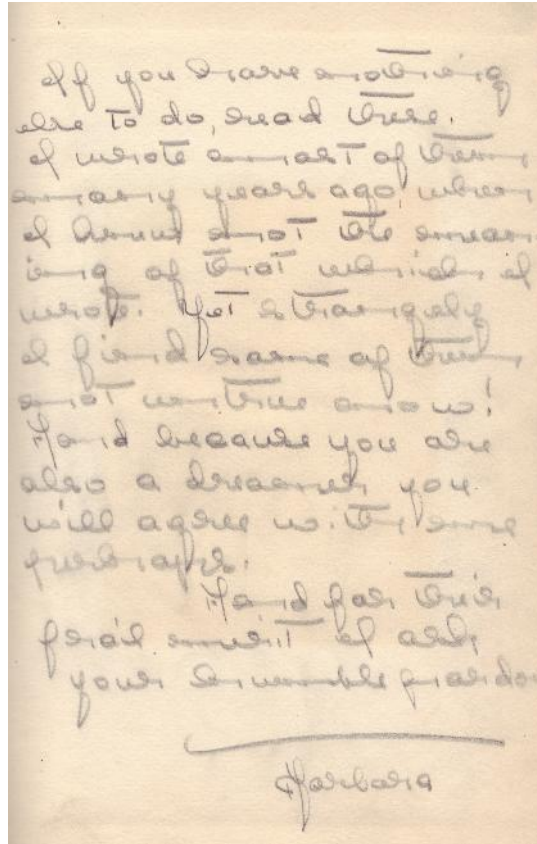 If you have nothing
else to do, read these.
I wrote most of them
many years ago, when
I knew not the mean
ing of that which I
wrote. Yet strangely
I find some of them
not untrue now!
And because you are
also a dreamer, you
will agree with me
perhaps.
And for their
frail merit I ask
your humble pardon
Barbara